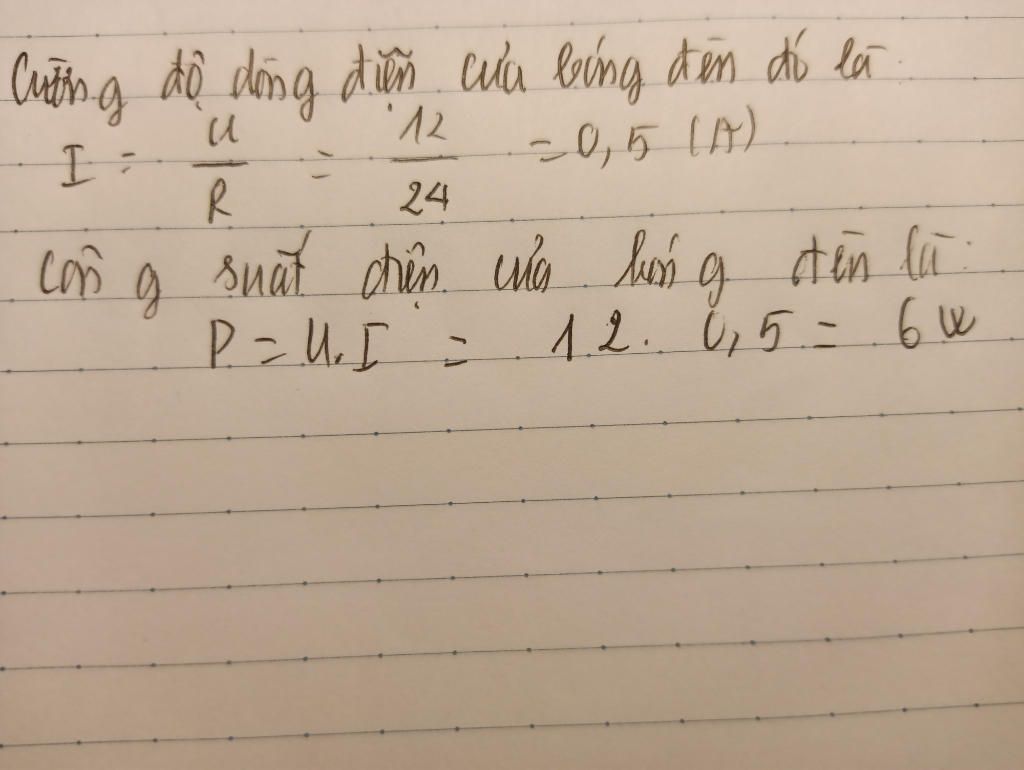 Cường độ dòng điện của bóng đèn đó là
I = U/R = 12/24 = 0,5 (A)
Công suất điện của bóng đèn là:
P = U.I = 12. 0,5 = 6 W